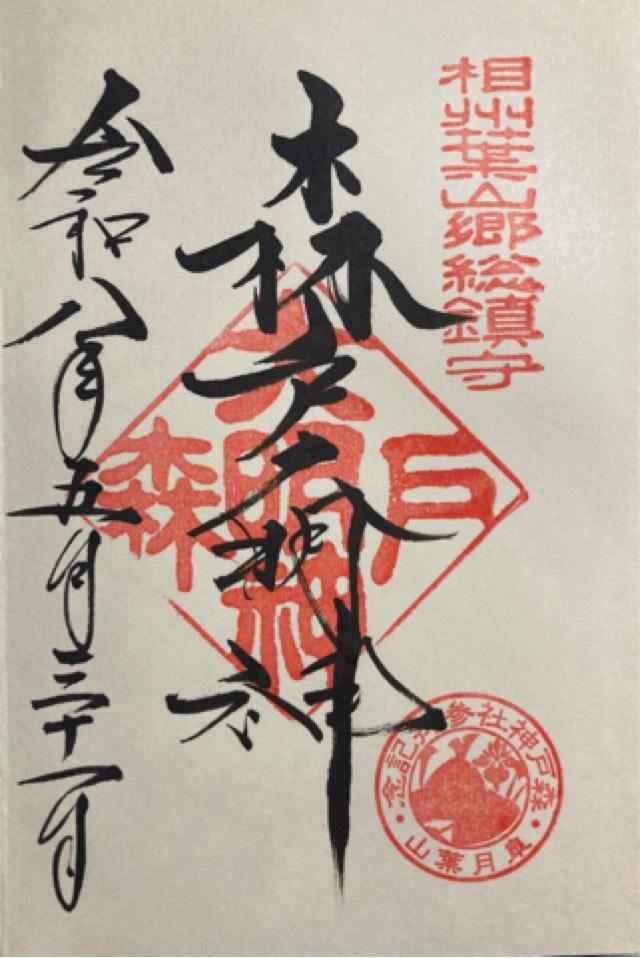 相州葉山郷総鎮守
森戸大明神
森戸大明神
森戸神社参拝記念
皐月葉山
令和八年五月三十一日